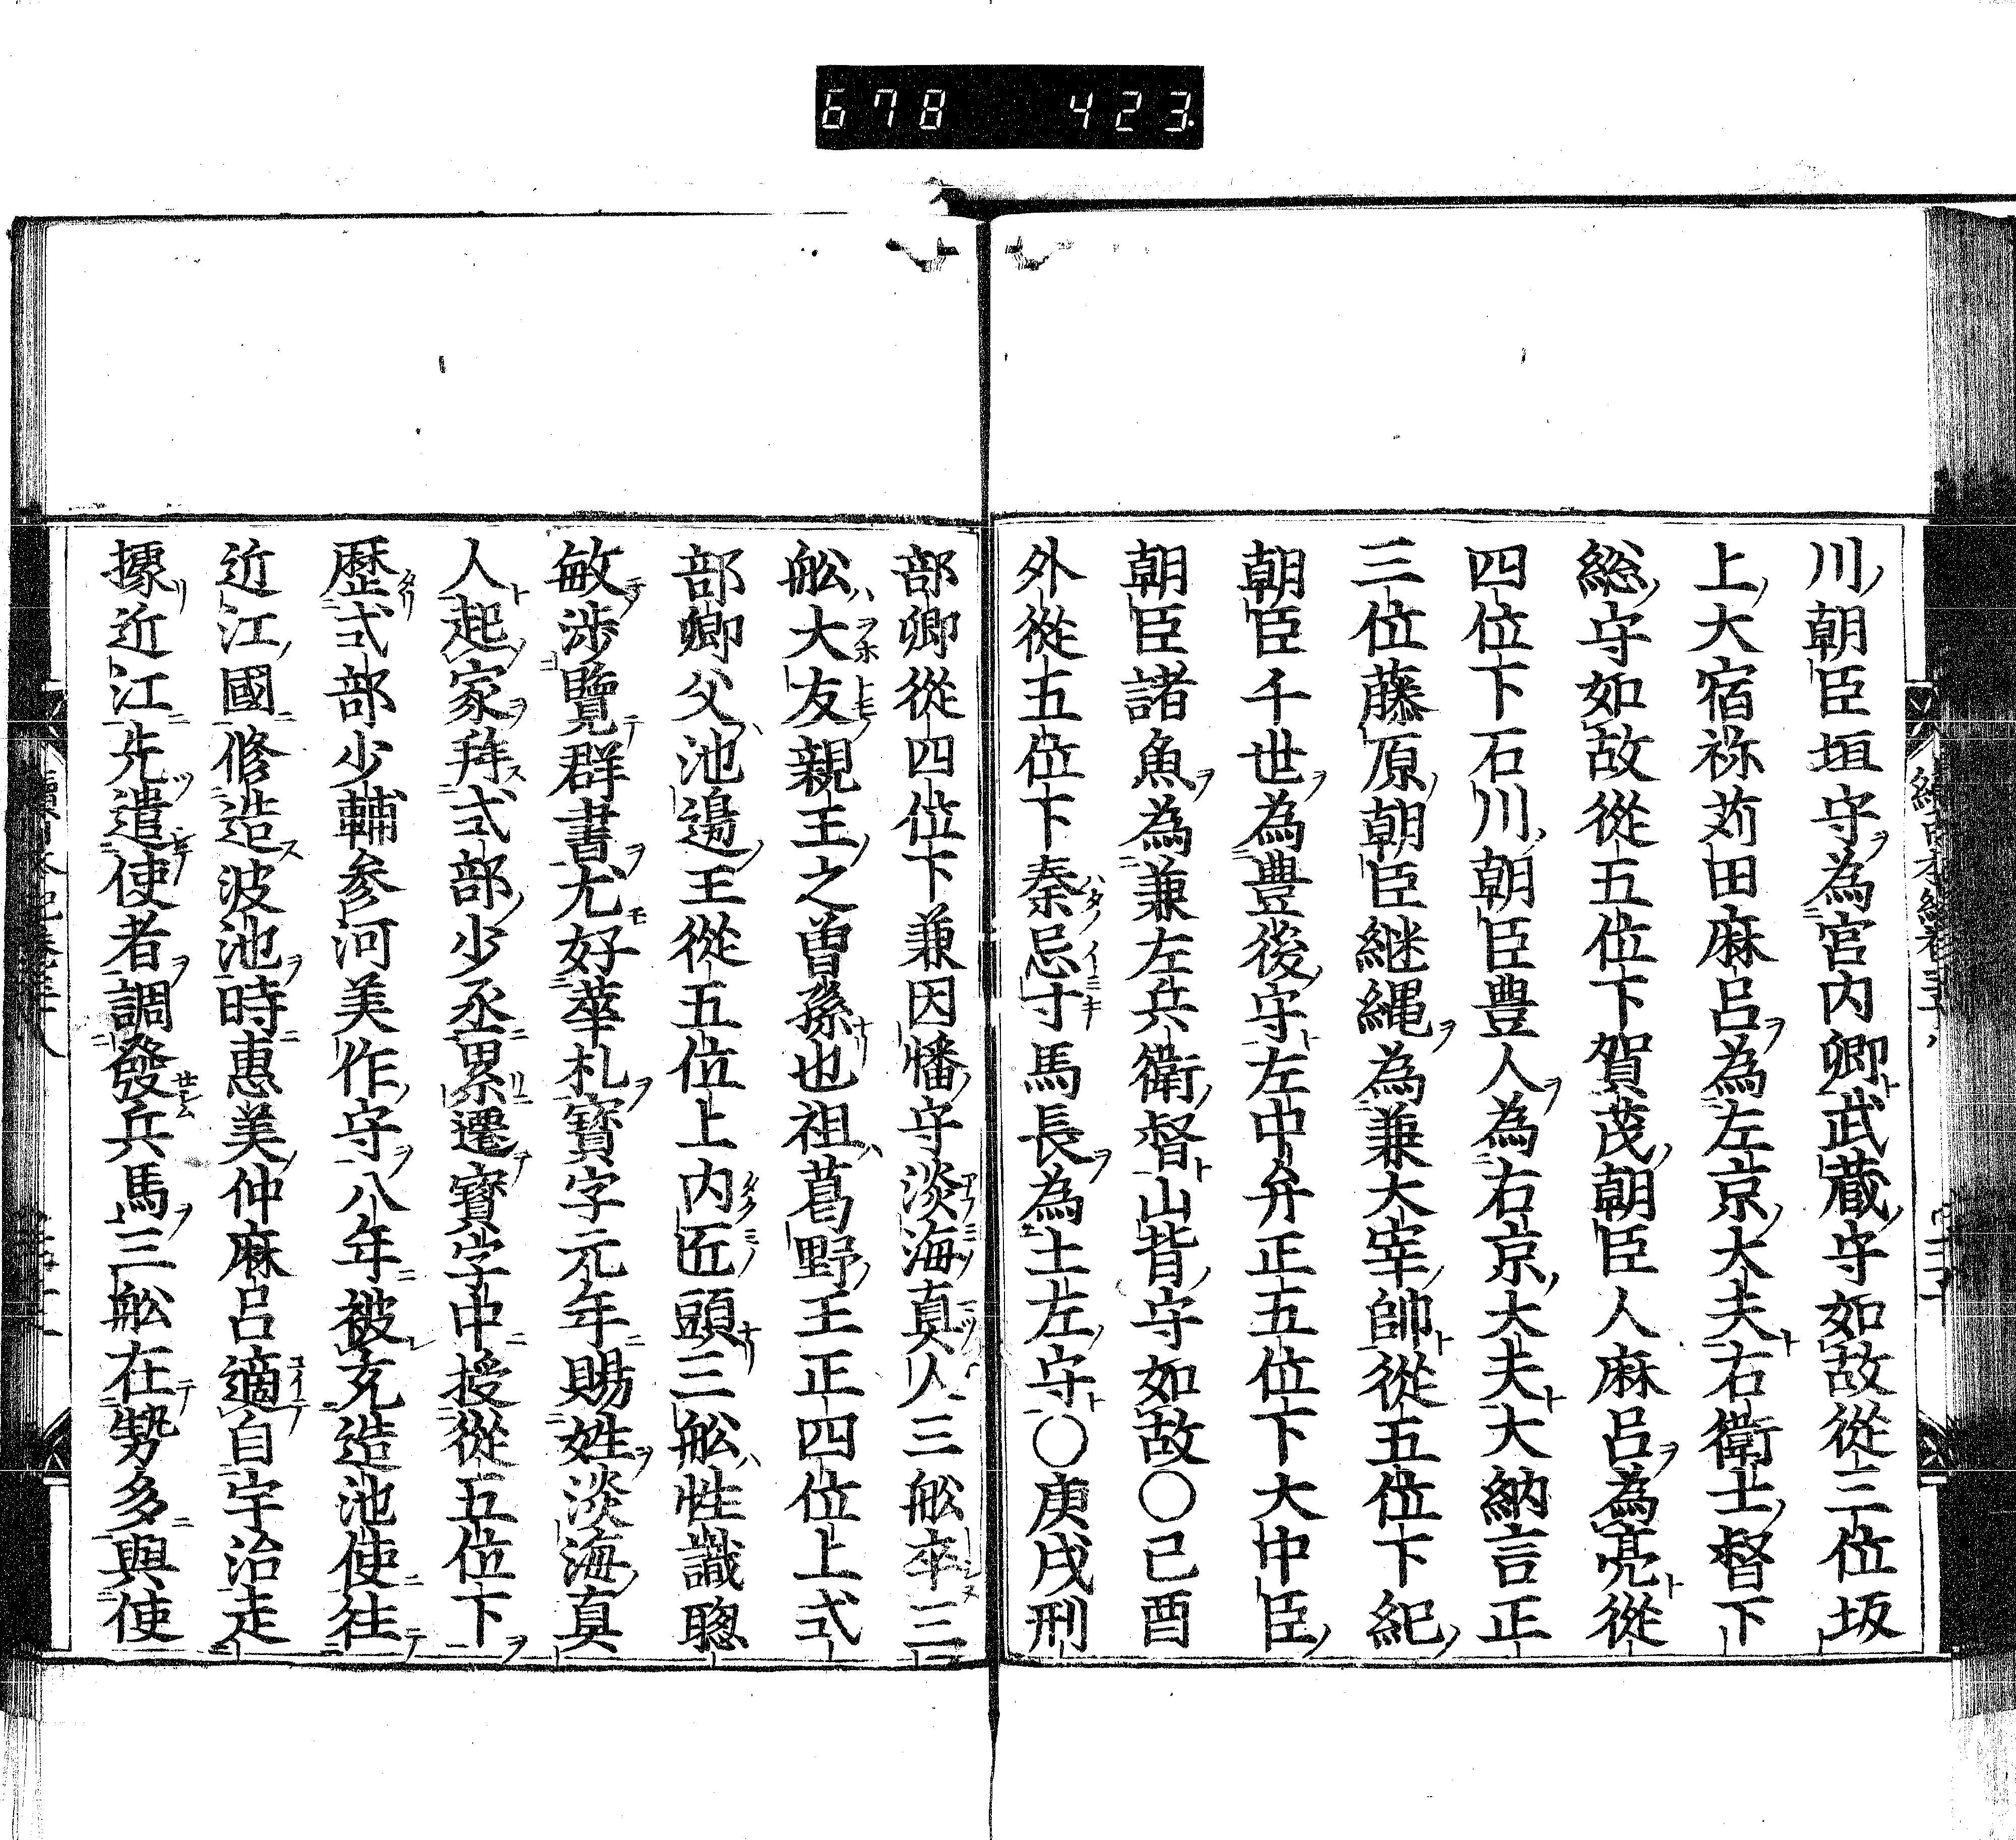 678 423
川朝臣垣守為宮内卿武蔵守如故從三位坂
上大宿祢苅田麻呂為左京大夫右衛士督下
総守如故從五位下賀茂朝臣人麻呂為亮從
四位下石川朝臣豊人為右京大夫大納言正
三位藤原朝臣継縄為兼大宰帥從五位下紀
朝臣千世為豊後守左中弁正五位下大中臣
朝臣諸魚為兼左兵衛督山背守如故〇己酉
外從五位下秦忌寸馬長為土左守〇庚戌刑
部卿從四位下兼因幡守淡海真人三舩卒三
舩大友親王之曽孫也祖葛野王正四位上式
部卿父池邊王從五位上内匠頭三舩性識聰
敏渉覽群書尤好華札寳字元年賜姓淡海真
人起家拜式部少丞累遷寳字中授從五位下
歴式部少輔参河美作守八年被充造池使往
近江國修造波池時恵美仲麻呂適自宇治走
據近江先遣使者調發兵馬三舩在勢多與使